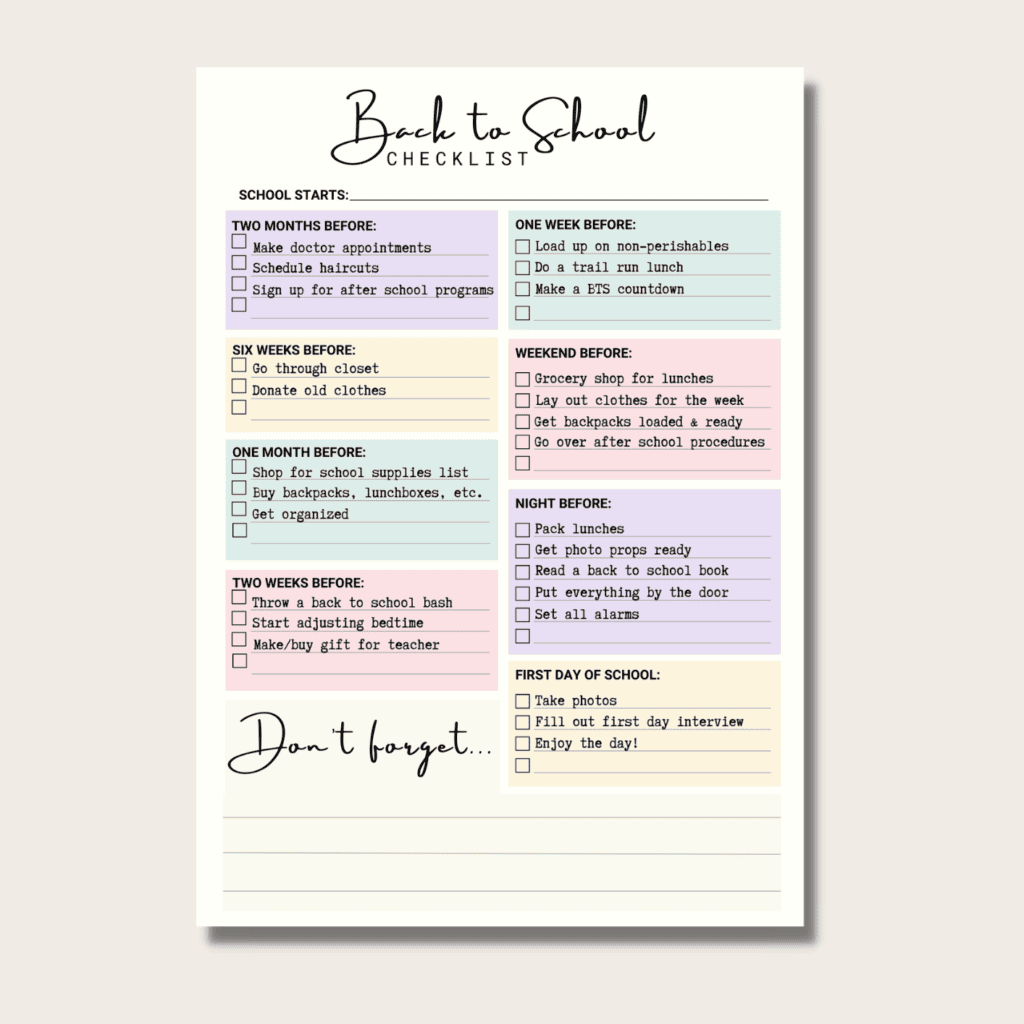 Back to School
CHECKLIST
SCHOOL STARTS:
TWO MONTHS BEFORE:
Make doctor appointments
Schedule haircuts
Sign up for after school programs
SIX WEEKS BEFORE:
Go through closet
Donate old clothes
ONE MONTH BEFORE:
Shop for school supplies list
Buy backpacks, lunchboxes, etc.
Get organized
TWO WEEKS BEFORE:
Throw a back to school bash
Start adjusting bedtime
Make/buy gift for teacher
ONE WEEK BEFORE:
Load up on non-perishables
Do a trail run lunch
Make a BTS countdown
WEEKEND BEFORE:
Grocery shop for lunches
Lay out clothes for the week
Get backpacks loaded & ready
Go over after school procedures
NIGHT BEFORE:
Pack lunches
Get photo props ready
Read a back to school book
Put everything by the door
Set all alarms
FIRST DAY OF SCHOOL:
Take photos
Fill out first day interview
Enjoy the day!
Don't forget...